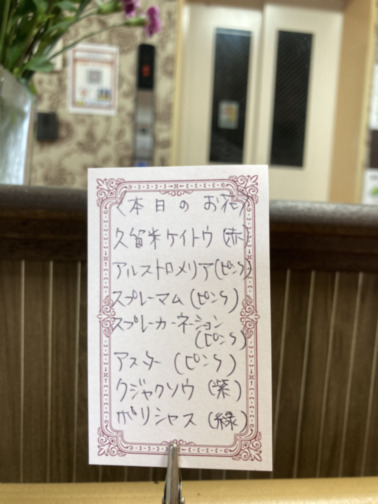 〈本日のお花〉
久留米ケイトウ(赤)
アルストロメリア(ピンク)
スプレーマム(ピンク)
スプレーカーネーション
(ピンク)
アスター(ピンク)
クジャクソウ(紫)
ガリシャス(緑)